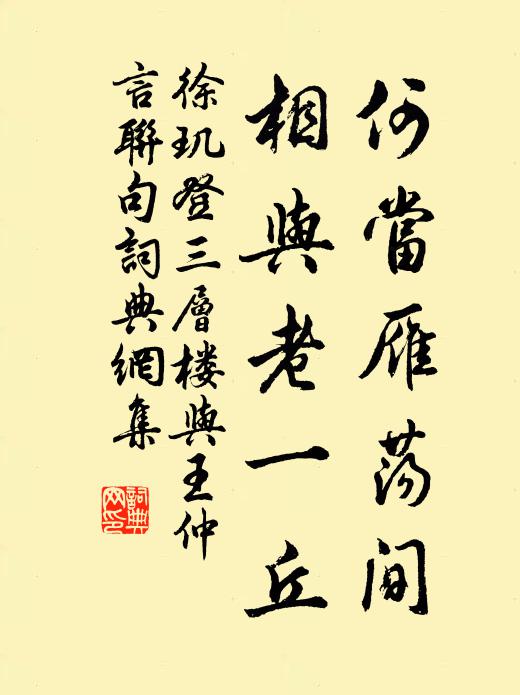 何當雁荡间
相與老一丘
徐玑登三層楼與王仲
言聯句詞典網集
詞典
网印